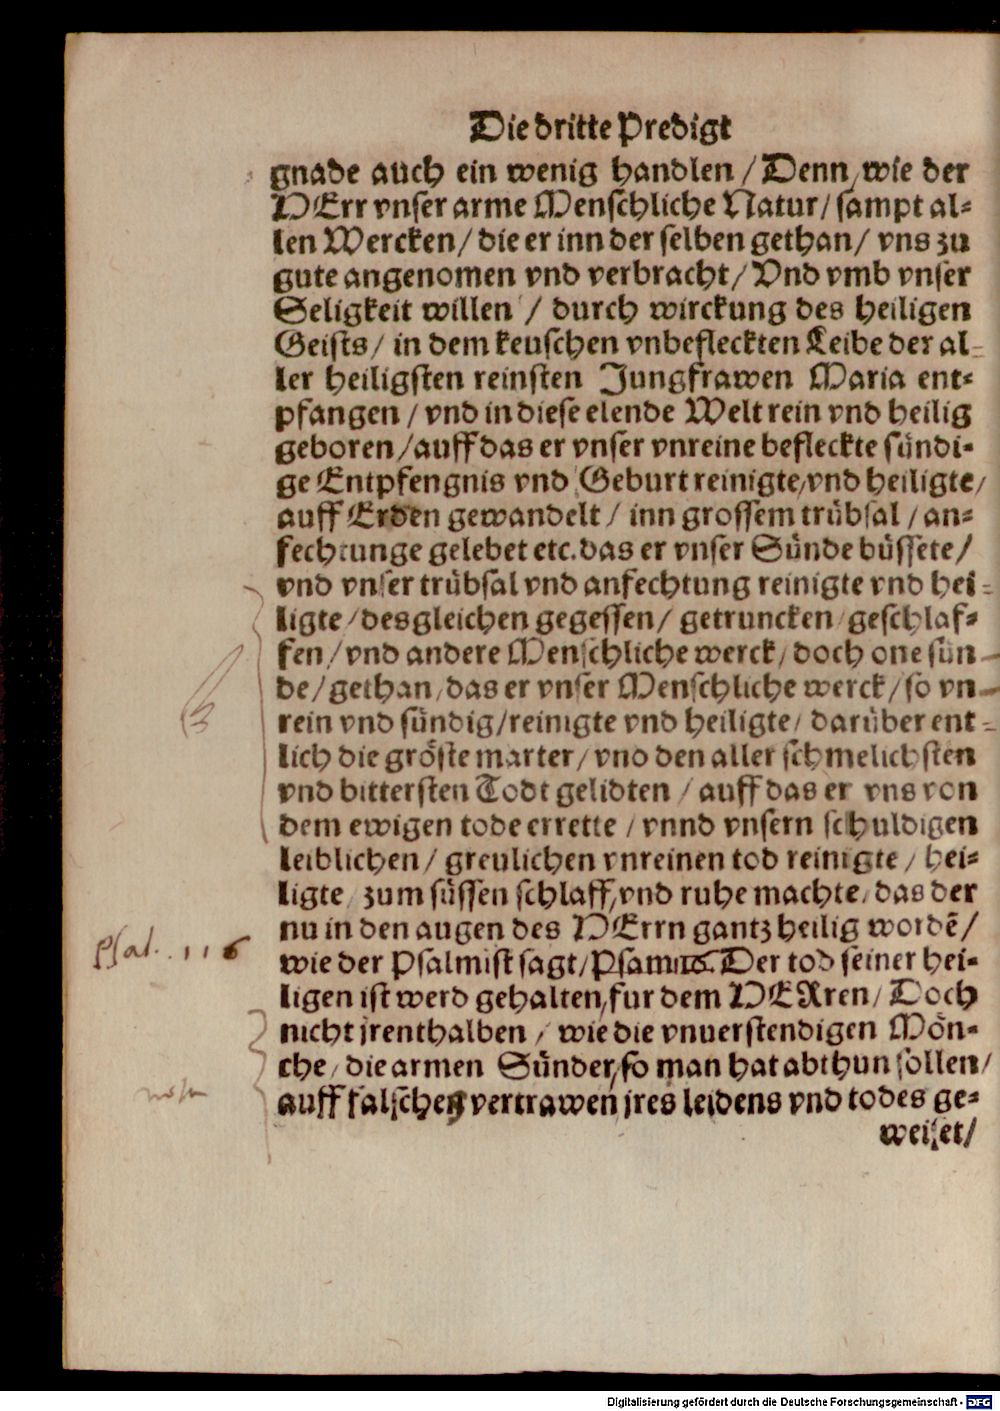 Die dritte Predigt
gnade auch ein wenig handlen / Denn, wie der
HErr vnser arme Menschliche Natur / sampt al-
len Wercken / die er inn der selben gethan / vns zu
gute angenomen vnd verbracht / Vnd vmb vnser
Seligkeit willen / durch wirckung des heiligen
Geists / in dem keuschen vnbefleckten Leibe der al-
ler heiligsten reinsten Jungfrawen Maria ent-
pfangen / vnd in diese elende Welt rein vnd heilig
geboren / auff das er vnser vnreine befleckte sündi-
ge Entpfengnis vnd Geburt reinigte, vnd heiligte /
auff Erden gewandelt / inn grossem trübsal / an-
fechtunge gelebet etc. das er vnser Sünde büssete /
vnd vnser trübsal vnd anfechtung reinigte vnd hei-
ligte / desgleichen gegessen / getruncken / geschlaf-
fen / vnd andere Menschliche werck / doch one sün-
de / gethan, das er vnser Menschliche werck / so vn-
rein vnd sündig / reinigte vnd heiligte / darüber ent-
lich die gröste marter / vnd den aller schmelichsten
vnd bittersten Todt gelidten / auff das er vns von
dem ewigen tode errette / vnnd vnsern schuldigen
leiblichen / greulichen vnreinen tod reinigte / hei-
ligte / zum süssen schlaff, vnd ruhe machte / das der
nu in den augen des HErrn gantz heilig wordẽ /
Psal. 116
wie der Psalmist sagt / Psam Der tod seiner hei-
ligen ist werd gehalten, fur dem HERren / Doch
nicht jrenthalben / wie die vnuerstendigen Mön-
che / die armen Sünder, so man hat abthun sollen /
auff falschen vertrawen jres leidens vnd todes ge-
weiset /
Digitalisierung gefördert durch die Deutsche Forschungsgemeinschaft - DFG